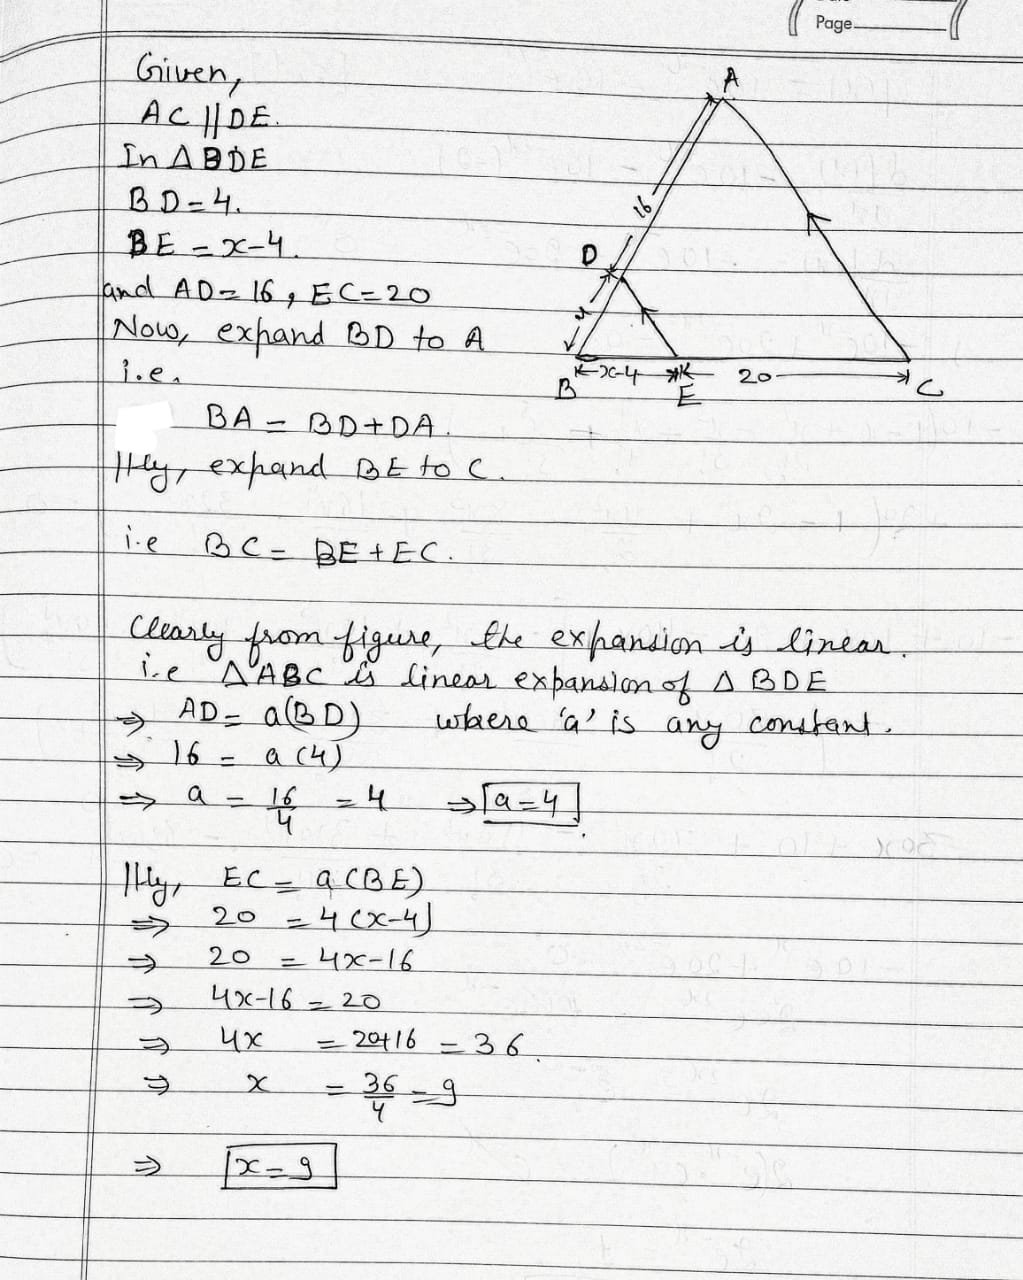 Page
Given,
AC || DE.
In Δ BDE
BD = 4.
BE = x-4.
and AD = 16, EC = 20
Now, expand BD to A
i.e.
BA = BD + DA.
||rly, expand BE to C.
i.e BC = BE + EC.
A
16
D
4
B
x-4
E
20
C
Clearly from figure, the expansion is linear.
i.e Δ ABC is linear expansion of Δ BDE
⇒ AD = a(BD) where 'a' is any constant.
⇒ 16 = a (4)
⇒ a = 16/4 = 4 ⇒ a = 4
||rly, EC = a (BE)
⇒ 20 = 4 (x-4)
⇒ 20 = 4x-16
⇒ 4x-16 = 20
⇒ 4x = 20+16 = 36.
⇒ x = 36/4 = 9
⇒ x = 9